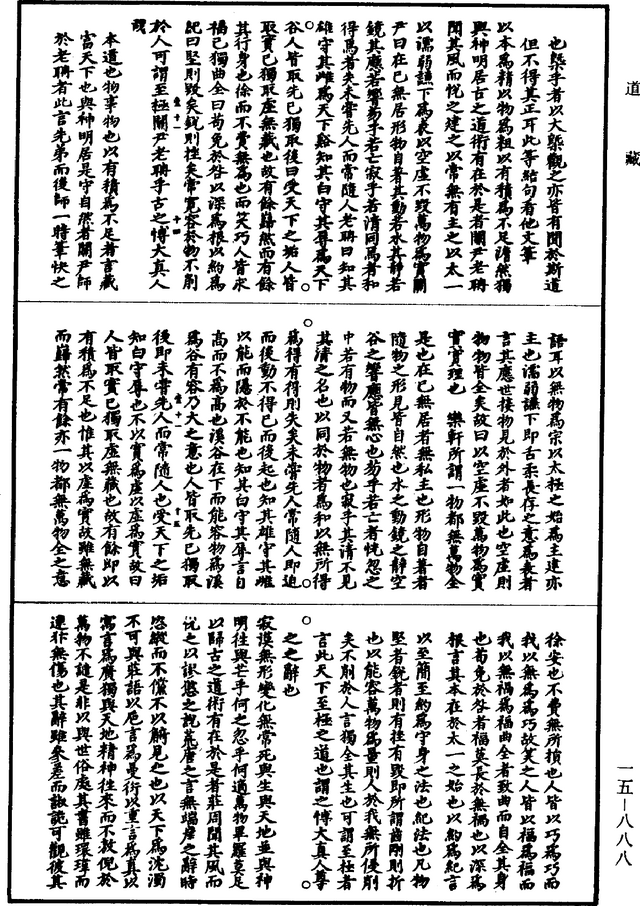 道藏
也槩乎者以大槩觀之亦皆有聞於斯道
但不得其正耳此等結句看他文筆
以本爲精以物爲粗以有積爲不足澹然獨
與神明居古之道術有在於是者關尹老聃
聞其風而悅之建之以常無有主之以太一
以濡弱謙下爲表以空虛不毀萬物爲實關
尹曰在己無居形物自著其動若水其靜若
鏡其應若響芴乎若亡寂乎若清同焉者和
得焉者失未嘗先人而常隨人老聃曰知其
雄守其雌爲天下谿知其白守其辱爲天下
谷人皆取先己獨取後曰受天下之垢人皆
取實己獨取虛無藏也故有餘巋然而有餘
其行身也徐而不費無爲也而笑巧人皆求
福己獨曲全曰苟免於咎以深爲根以約爲
紀曰堅則毀矣銳則挫矣常寬容於物不削
於人可謂至極關尹老聃乎古之博大真人
哉
本道也物事物也以有積爲不足者言藏
富天下也與神明居是守自然者關尹師
於老聃者此言先弟而後師一時筆快之
語耳以無物爲宗以太極之始爲主建亦
主也濡弱謙下即舌柔長存之意爲表者
言其應世接物見於外者如此也空虛則
物物皆全矣故曰以空虛不毀萬物爲實
實實理也 樂軒所謂一物都無萬物全
是也在己無居者無私主也形物自著者
隨物之形見皆自然也水之動鏡之靜空
谷之響應皆無心也芴乎若亡者恍忽之
中若有物而又若無物也寂乎其清不見
其清之名也以同於物者爲和以無所得
爲得有得則失矣未嘗先人常隨人即迫
而後動不得已而後起也知其雄守其雌
以能而隱於不能也知其白守其辱言自
高而不爲高也溪谷在下而能容物爲溪
爲谷有容乃大之意也人皆取先己獨取
後即未嘗先人而常隨人也受天下之垢
知白守辱也不以實爲虛以虛爲實故曰
人皆取實己獨取虛無藏也故有餘即以
有積爲不足也惟其以虛爲實故雖無藏
而巋然常有餘亦一物都無萬物全之意
徐安也不費無所損也人皆以巧爲巧而
我以無爲爲巧故笑之人皆以福爲福而
我以無禍爲福曲全者致曲而自全其身
也苟免於咎者福莫長於無禍也以深爲
根言其本在於太一之始也以約爲紀言
以至簡至約爲守身之法也紀法也凡物
堅者銳者則有挫有毀即所謂齒剛則折
也以能容萬物爲量則人於我無所侵削
矣不削於人言獨全其生也可謂至極者
言此天下至極之道也謂之博大真人尊
之之辭也
寂漠無形變化無常死與生與天地並與神
明往與芒乎何之忽乎何適萬物畢羅莫足
以歸古之道術有在於是者莊周聞其風而
悅之以謬悠之說荒唐之言無端崖之辭時
恣縱而不儻不以觭見之也以天下爲沈濁
不可與莊語以卮言爲曼衍以重言爲真以
寓言爲廣獨與天地精神往來而不敖倪於
萬物不譴是非以與世俗處其書雖瓌瑋而
連犿無傷也其辭雖參差而諔詭可觀彼其
一五—八八八